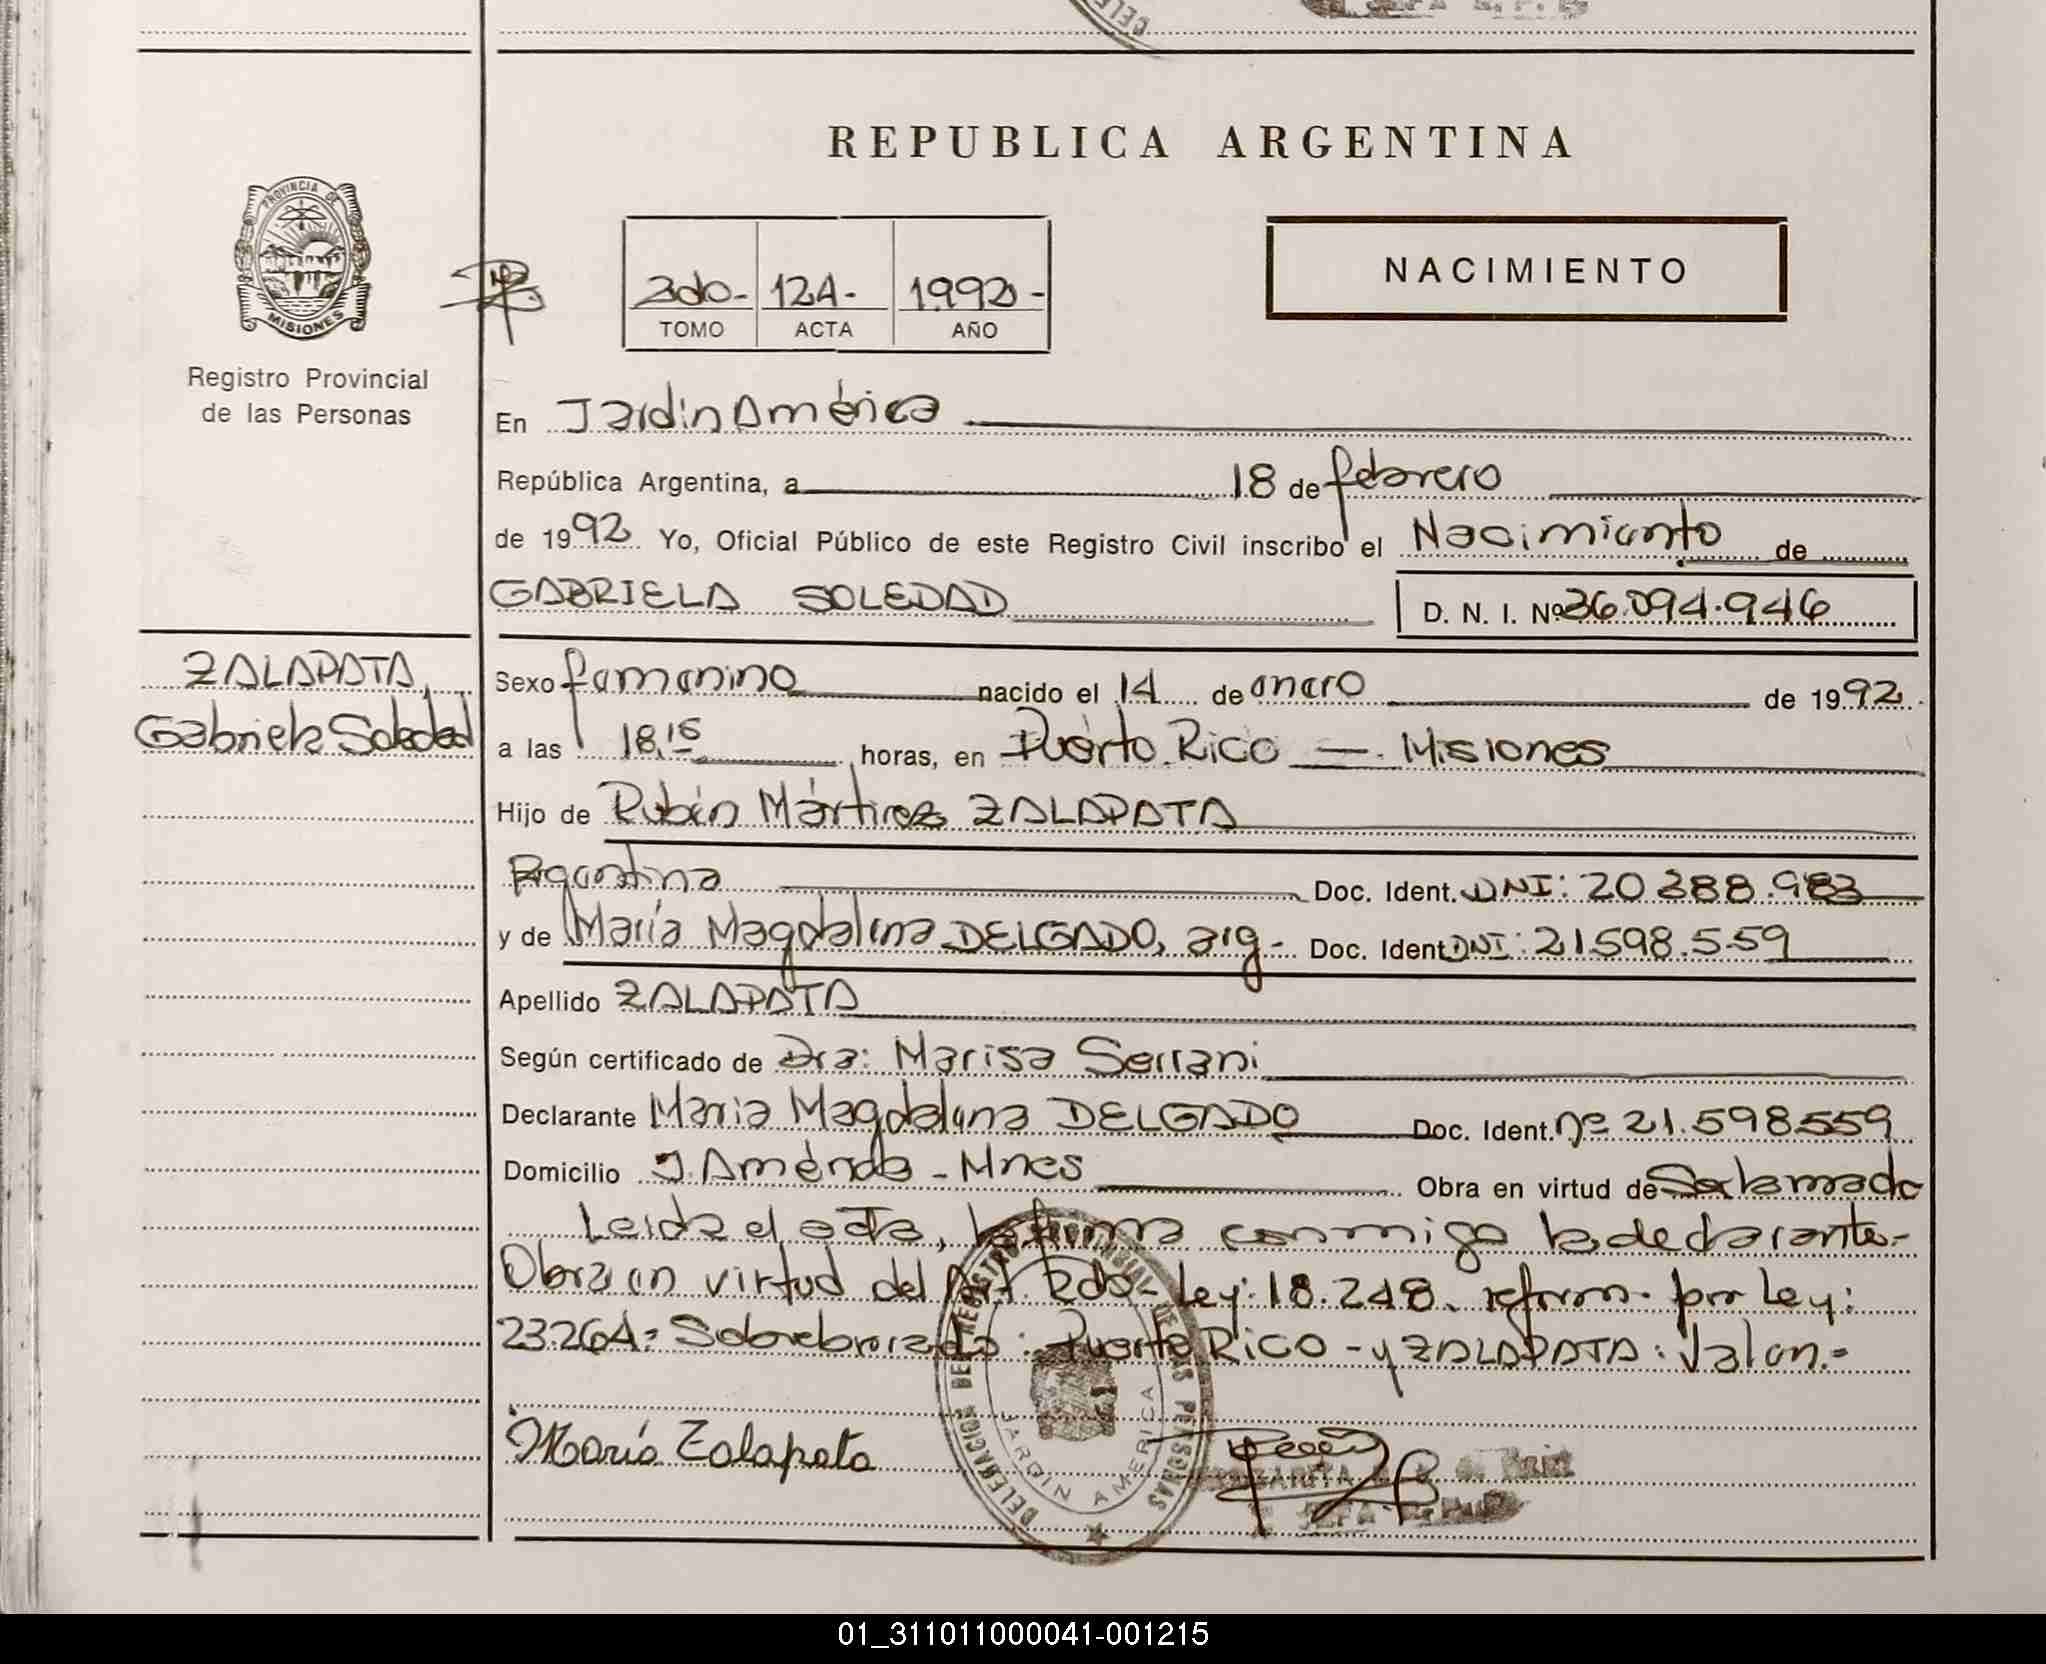 REPUBLICA ARGENTINA
PROVINCIA DE
MISIONES
Registro Provincial
de las Personas
2do- 124- 1992-
TOMO ACTA AÑO
NACIMIENTO
En Jardin América
República Argentina, a 18 de febrero
de 1992 Yo, Oficial Público de este Registro Civil inscribo el Nacimiento de
GABRIELA SOLEDAD D. N. I. Nº 36.094.946
ZALAPATA,
Gabriela Soledad
Sexo femenino nacido el 14 de enero de 1992
a las 18,15 horas, en Puerto Rico - Misiones
Hijo de Rubén Mártires ZALAPATA
Argentina Doc. Ident. DNI: 20 388.983
y de María Magdalena DELGADO, arg- Doc. Ident DNI: 21.598.559
Apellido ZALAPATA
Según certificado de Dra: Marisa Serrani
Declarante Maria Magdalena DELGADO Doc. Ident. Nº 21.598559
Domicilio J. América - Mnes Obra en virtud de
Leida el acta, la firma conmigo la declarante-
Obra en virtud del Art. 2do- Ley: 18.248. reform. por Ley:
23.264= Sobreborrado: Puerto Rico - y ZALAPATA: Valen.=
María Zalapata
JARDIN AMERICA
01_311011000041-001215